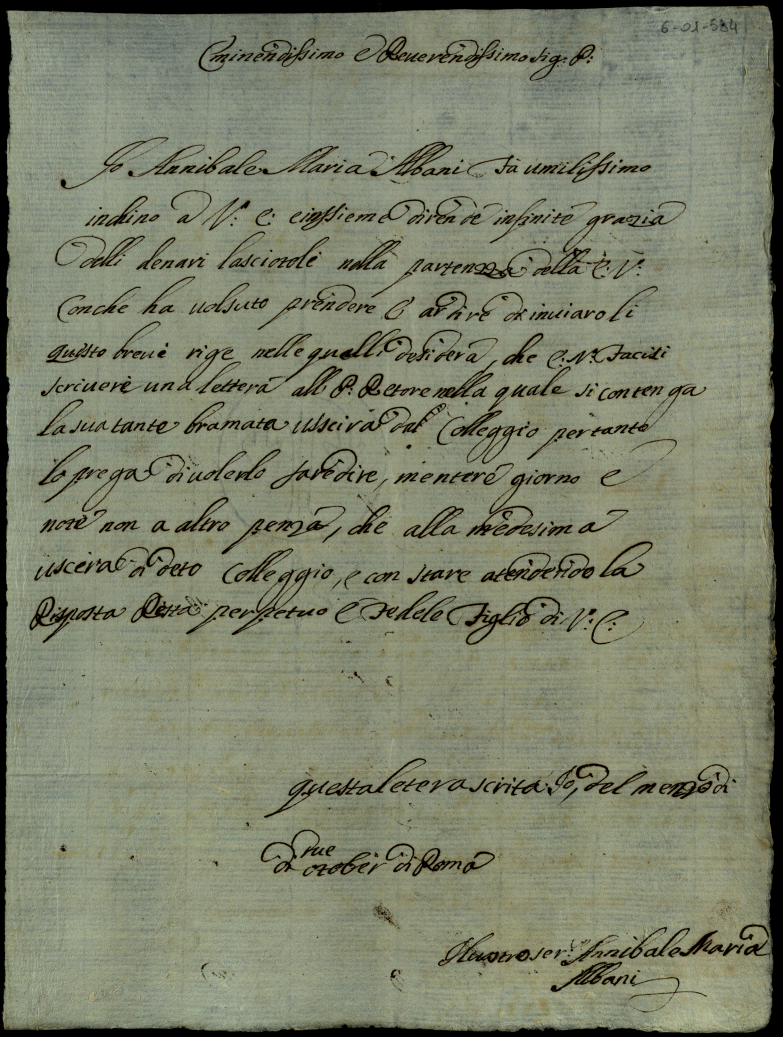 6-01-534
Eminendissimo e Reverendissimo Sig: P:
Io Annibale Maria Albani Fà umilissimo
inchino a V: E: e inssieme di rende infinite grazia
delli denari lasciotole nella partenza della E: V:
Conche ha volsuto prendere l' ardire di inviaroli
questo breve rige nelle qualli desidera, che E: V: Faciti
scrivere una lettera all P: Retore nella quale si contenga
la sua tante bramata usscira dal Colleggio per tante
lo prega di volerlo faredire, mentere giorno e
note non a altro penza, che alla medesima
uscera di deto Colleggio, e con stare atendendo la
Risposta Resta perpetuo e Fedele Figlio di V: E:
questa letera scrita Io, del menzo di
rue
di otober di Roma
Il vostro ser: Annibale Maria
Albani